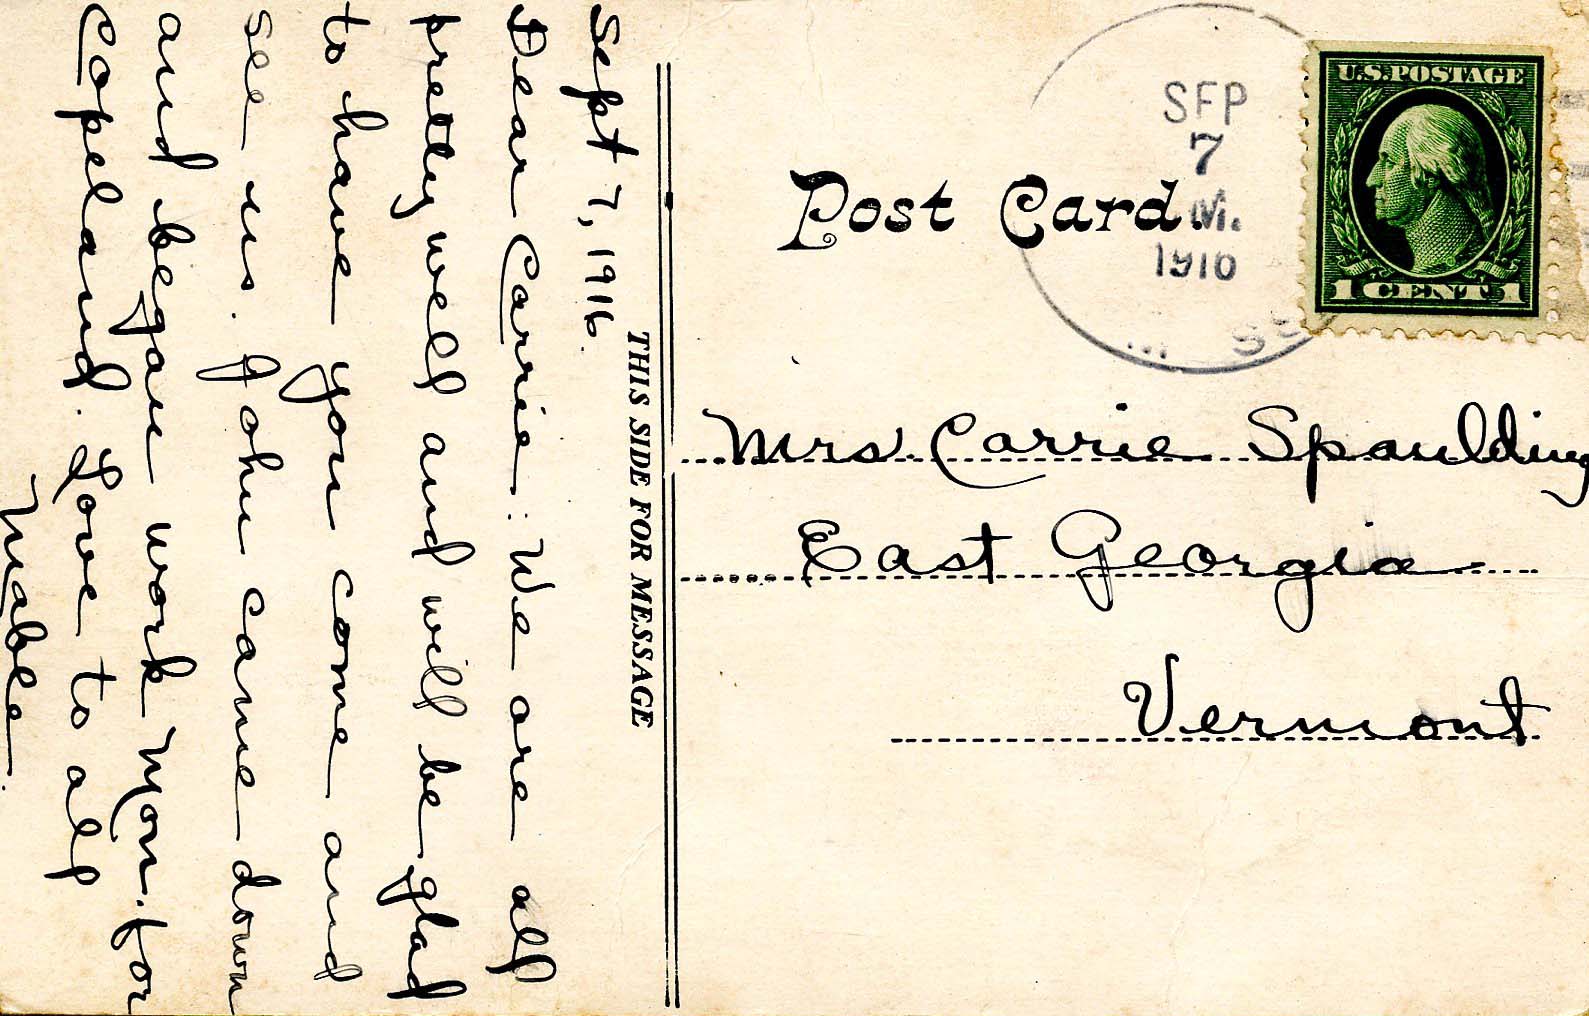 Sept 7, 1916.
Dear Carrie: We are all
pretty well and will be glad
to have you come and
see us. John came down
and began work Mon. for
Copeland. Love to all
Mable.
THIS SIDE FOR MESSAGE
Post Card.
SEP
7
M.
1916
U.S. POSTAGE
1 CENT 1
Mrs. Carrie Spaulding
East Georgia
Vermont